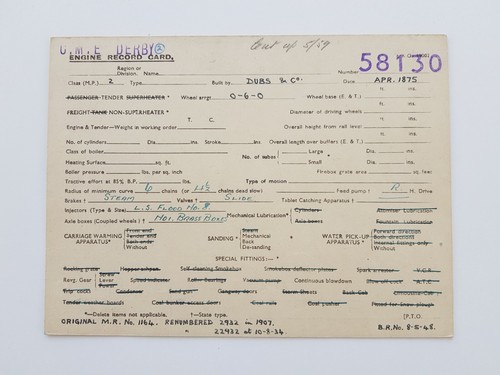 C.M.E DERBY Cut up 5/59
ENGINE RECORD CARD. 58130
Region or
Division. Name Number
Class (M.P.) 2 Type Built by DUBS & Co. Date APR. 1875
PASSENGER-TENDER SUPERHEATER* Wheel arrgt. 0-6-0 Wheel base (E. & T.) ft. ins.
FREIGHT-TANK NON-SUPERHEATER* Diameter of driving wheels ft. ins.
Engine & Tender—Weights in working order T. C. Overall height from rail level ft. ins.
No. of cylinders Dia. ins. Stroke ins. Overall length over buffers (E. & T.) ft. ins.
Class of boiler No. of tubes Large Dia. ins.
Heating Surface sq. ft. Small* Dia. ins.
Boiler pressure lbs. per sq. inch Firebox grate area sq. ft.
Tractive effort at 85% B.P. lbs. Type of motion
Radius of minimum curve 6 chains (or 4½ chains dead slow) Feed pump R. H. Drive
Brakes† STEAM Valves† SLIDE Tablet Catching Apparatus†
Injectors (Type & Size) L.S. FLOOD No. 8
Axle boxes (Coupled wheels)† Hor. BRASS BOLT Mechanical Lubrication* Cylinders Axle boxes Atomiser Lubrication Fountain Lubrication
CARRIAGE WARMING APPARATUS* Front end Tender end Both ends Without
SANDING* Steam Mechanical Back De-sanding
WATER PICK-UP APPARATUS* Forward direction Both directions Internal fittings only Without
SPECIAL FITTINGS:—*
Rocking grate Hopper ashpan Self-cleaning Smokebox Smokebox deflector plates Spark arrester V.C.R.
Revg. Gear Screw Lever Power Speed Indicator Roller Bearings Vacuum pump Continuous blowdown Blow off cock A.T.C.
Trip cocks Condenser Sand gun Gangway doors Storm Sheets Back Cab
Tender weather boards Coal bunker access doors Coal rails Coal pusher Fitted for Snow plough
*—Delete items not applicable. †—State type. (P.T.O.
ORIGINAL M.R. No. 1164. RENUMBERED 2932 IN 1907. B.R. No. 8-5-48.
" 22932 at 10-3-34.